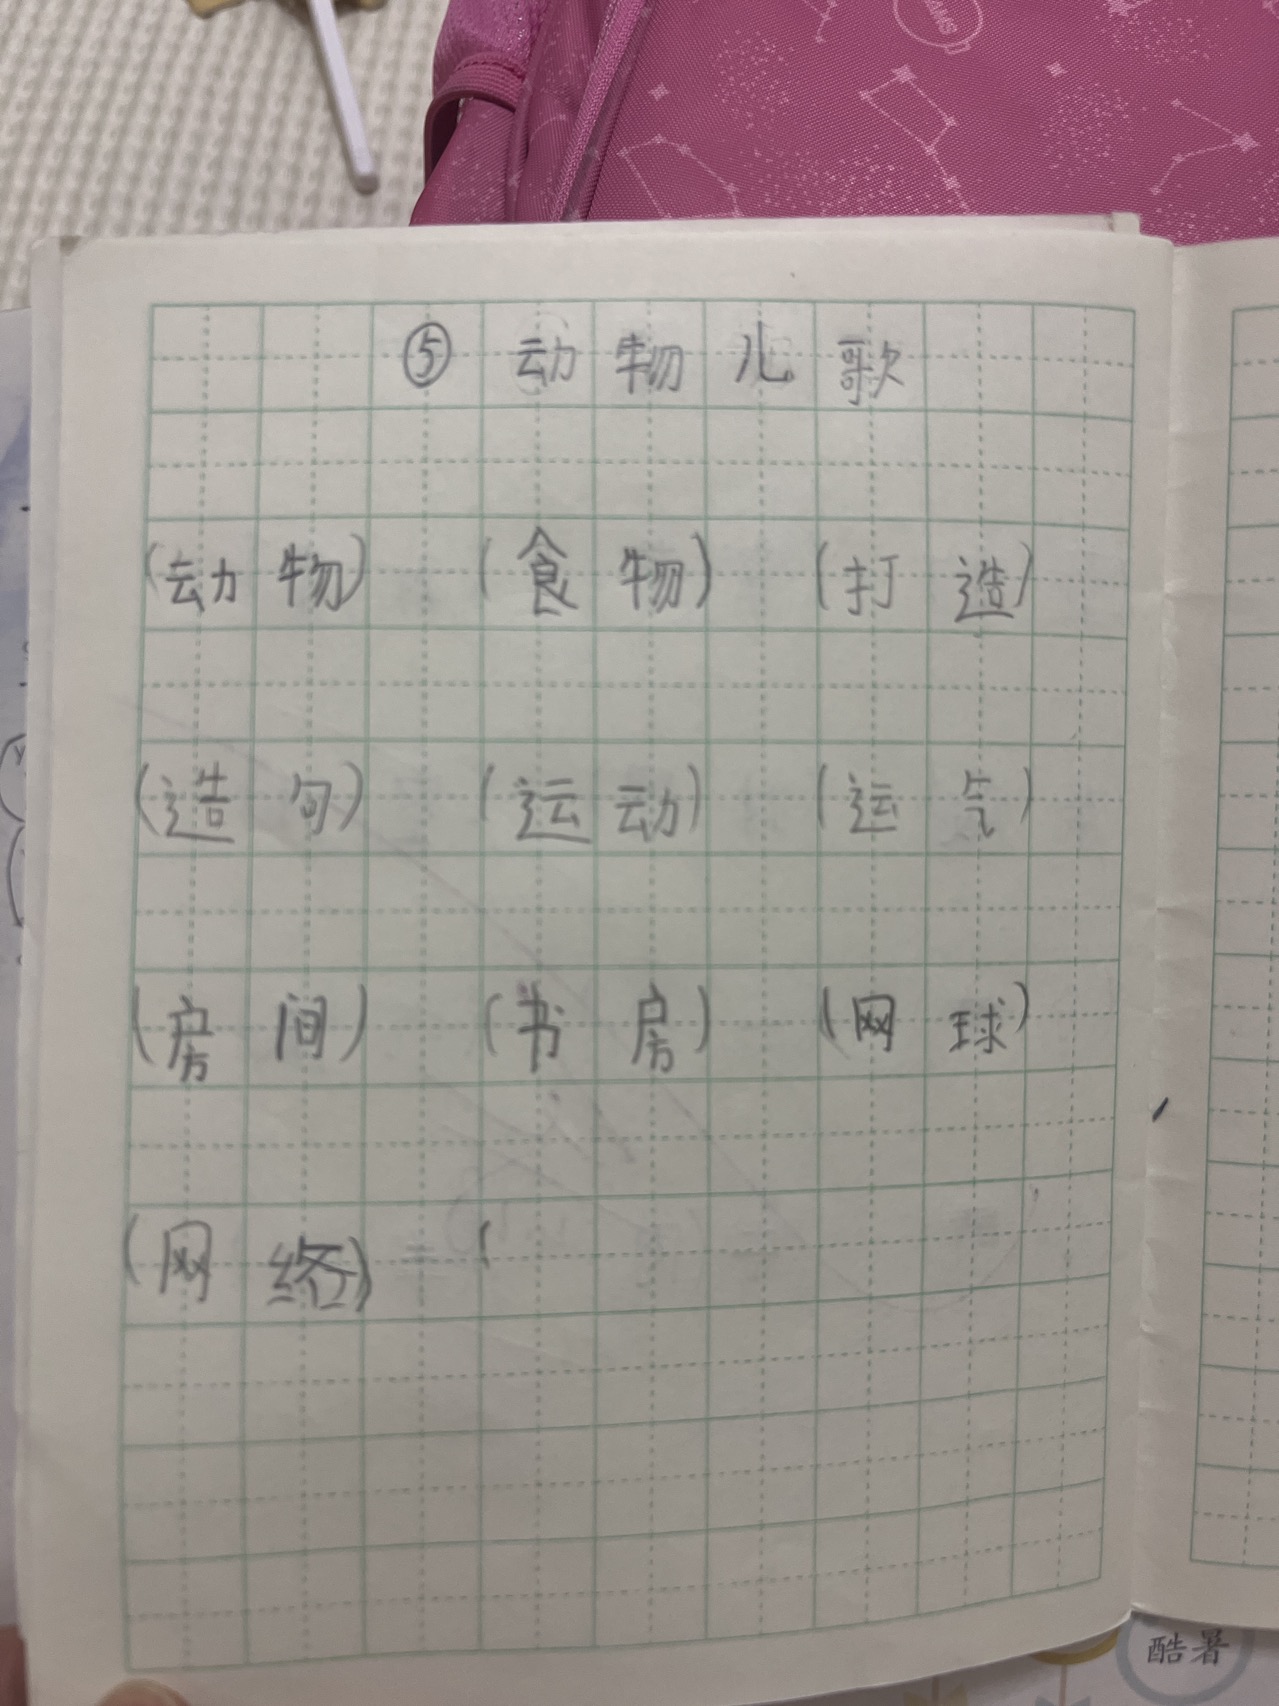 ⑤ 动物儿歌
(动物) (食物) (打造)
(造句) (运动) (运气)
(房间) (书房) (网球)
(网络) (
酷暑